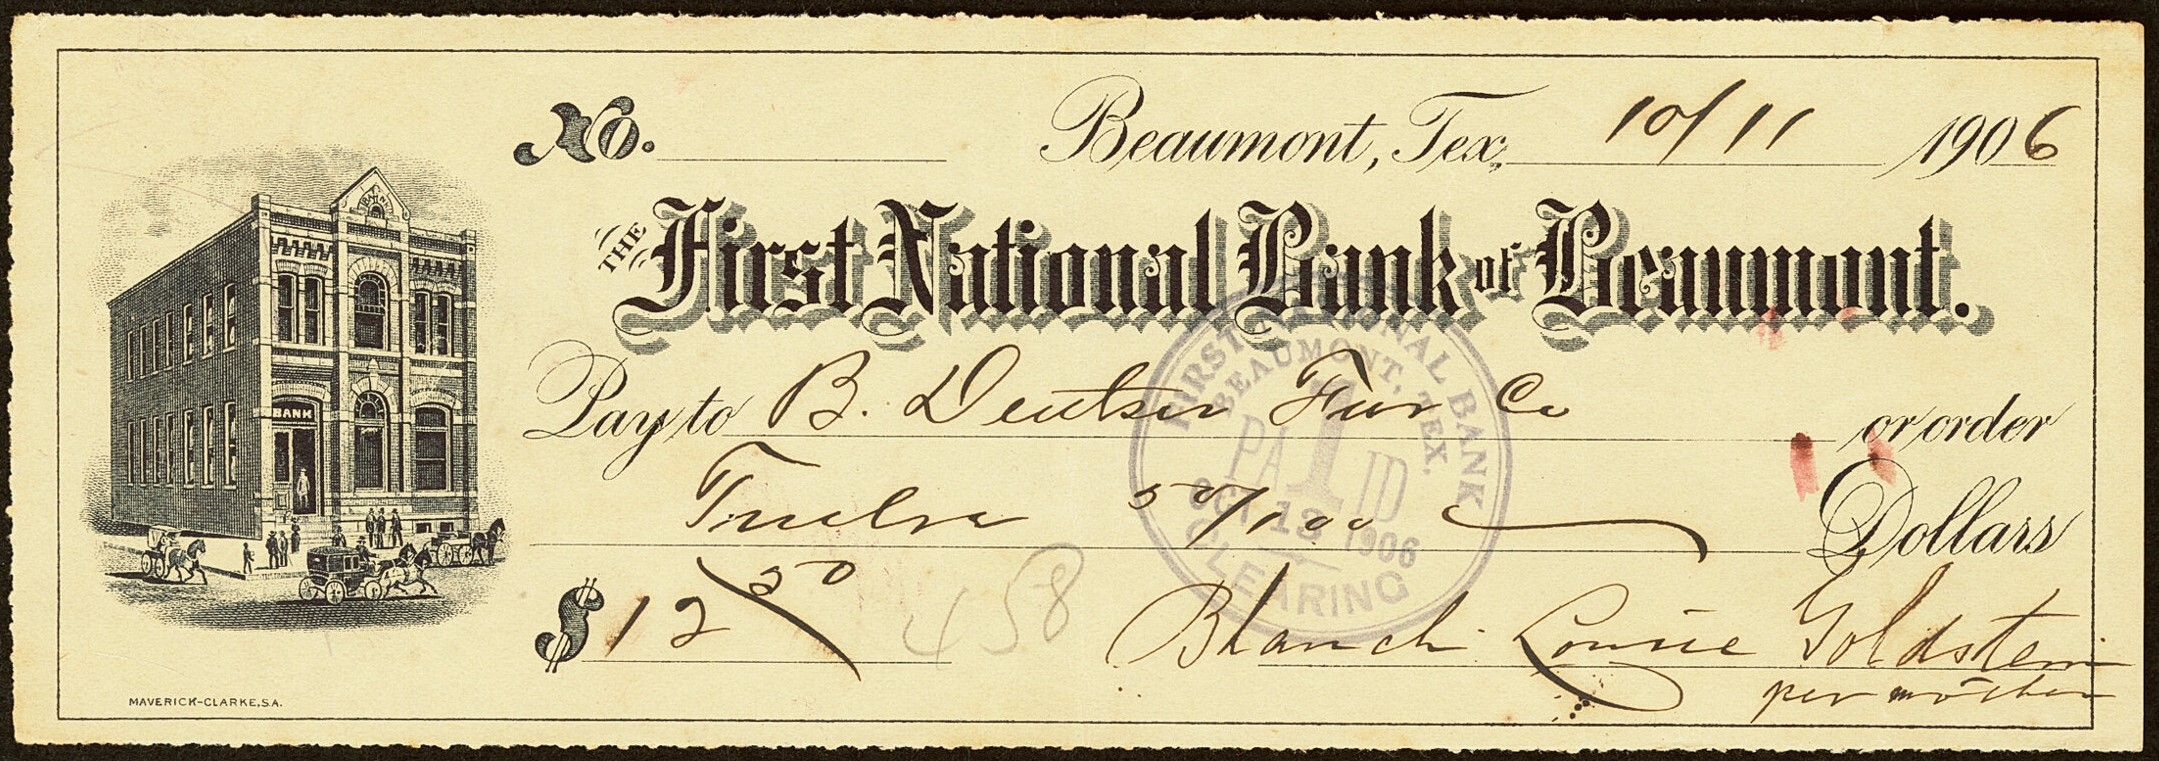 No. Beaumont, Tex. 10/11 1906
THE First National Bank of Beaumont.
Pay to B. Deutser Fur Co or order
Twelve 50/100 Dollars
$12 50
458
Blanch Louise Goldstein
per mother
BANK
MAVERICK-CLARKE, S.A.
FIRST NATIONAL BANK
BEAUMONT, TEX.
PAID
1
OCT 12 1906
CLEARING